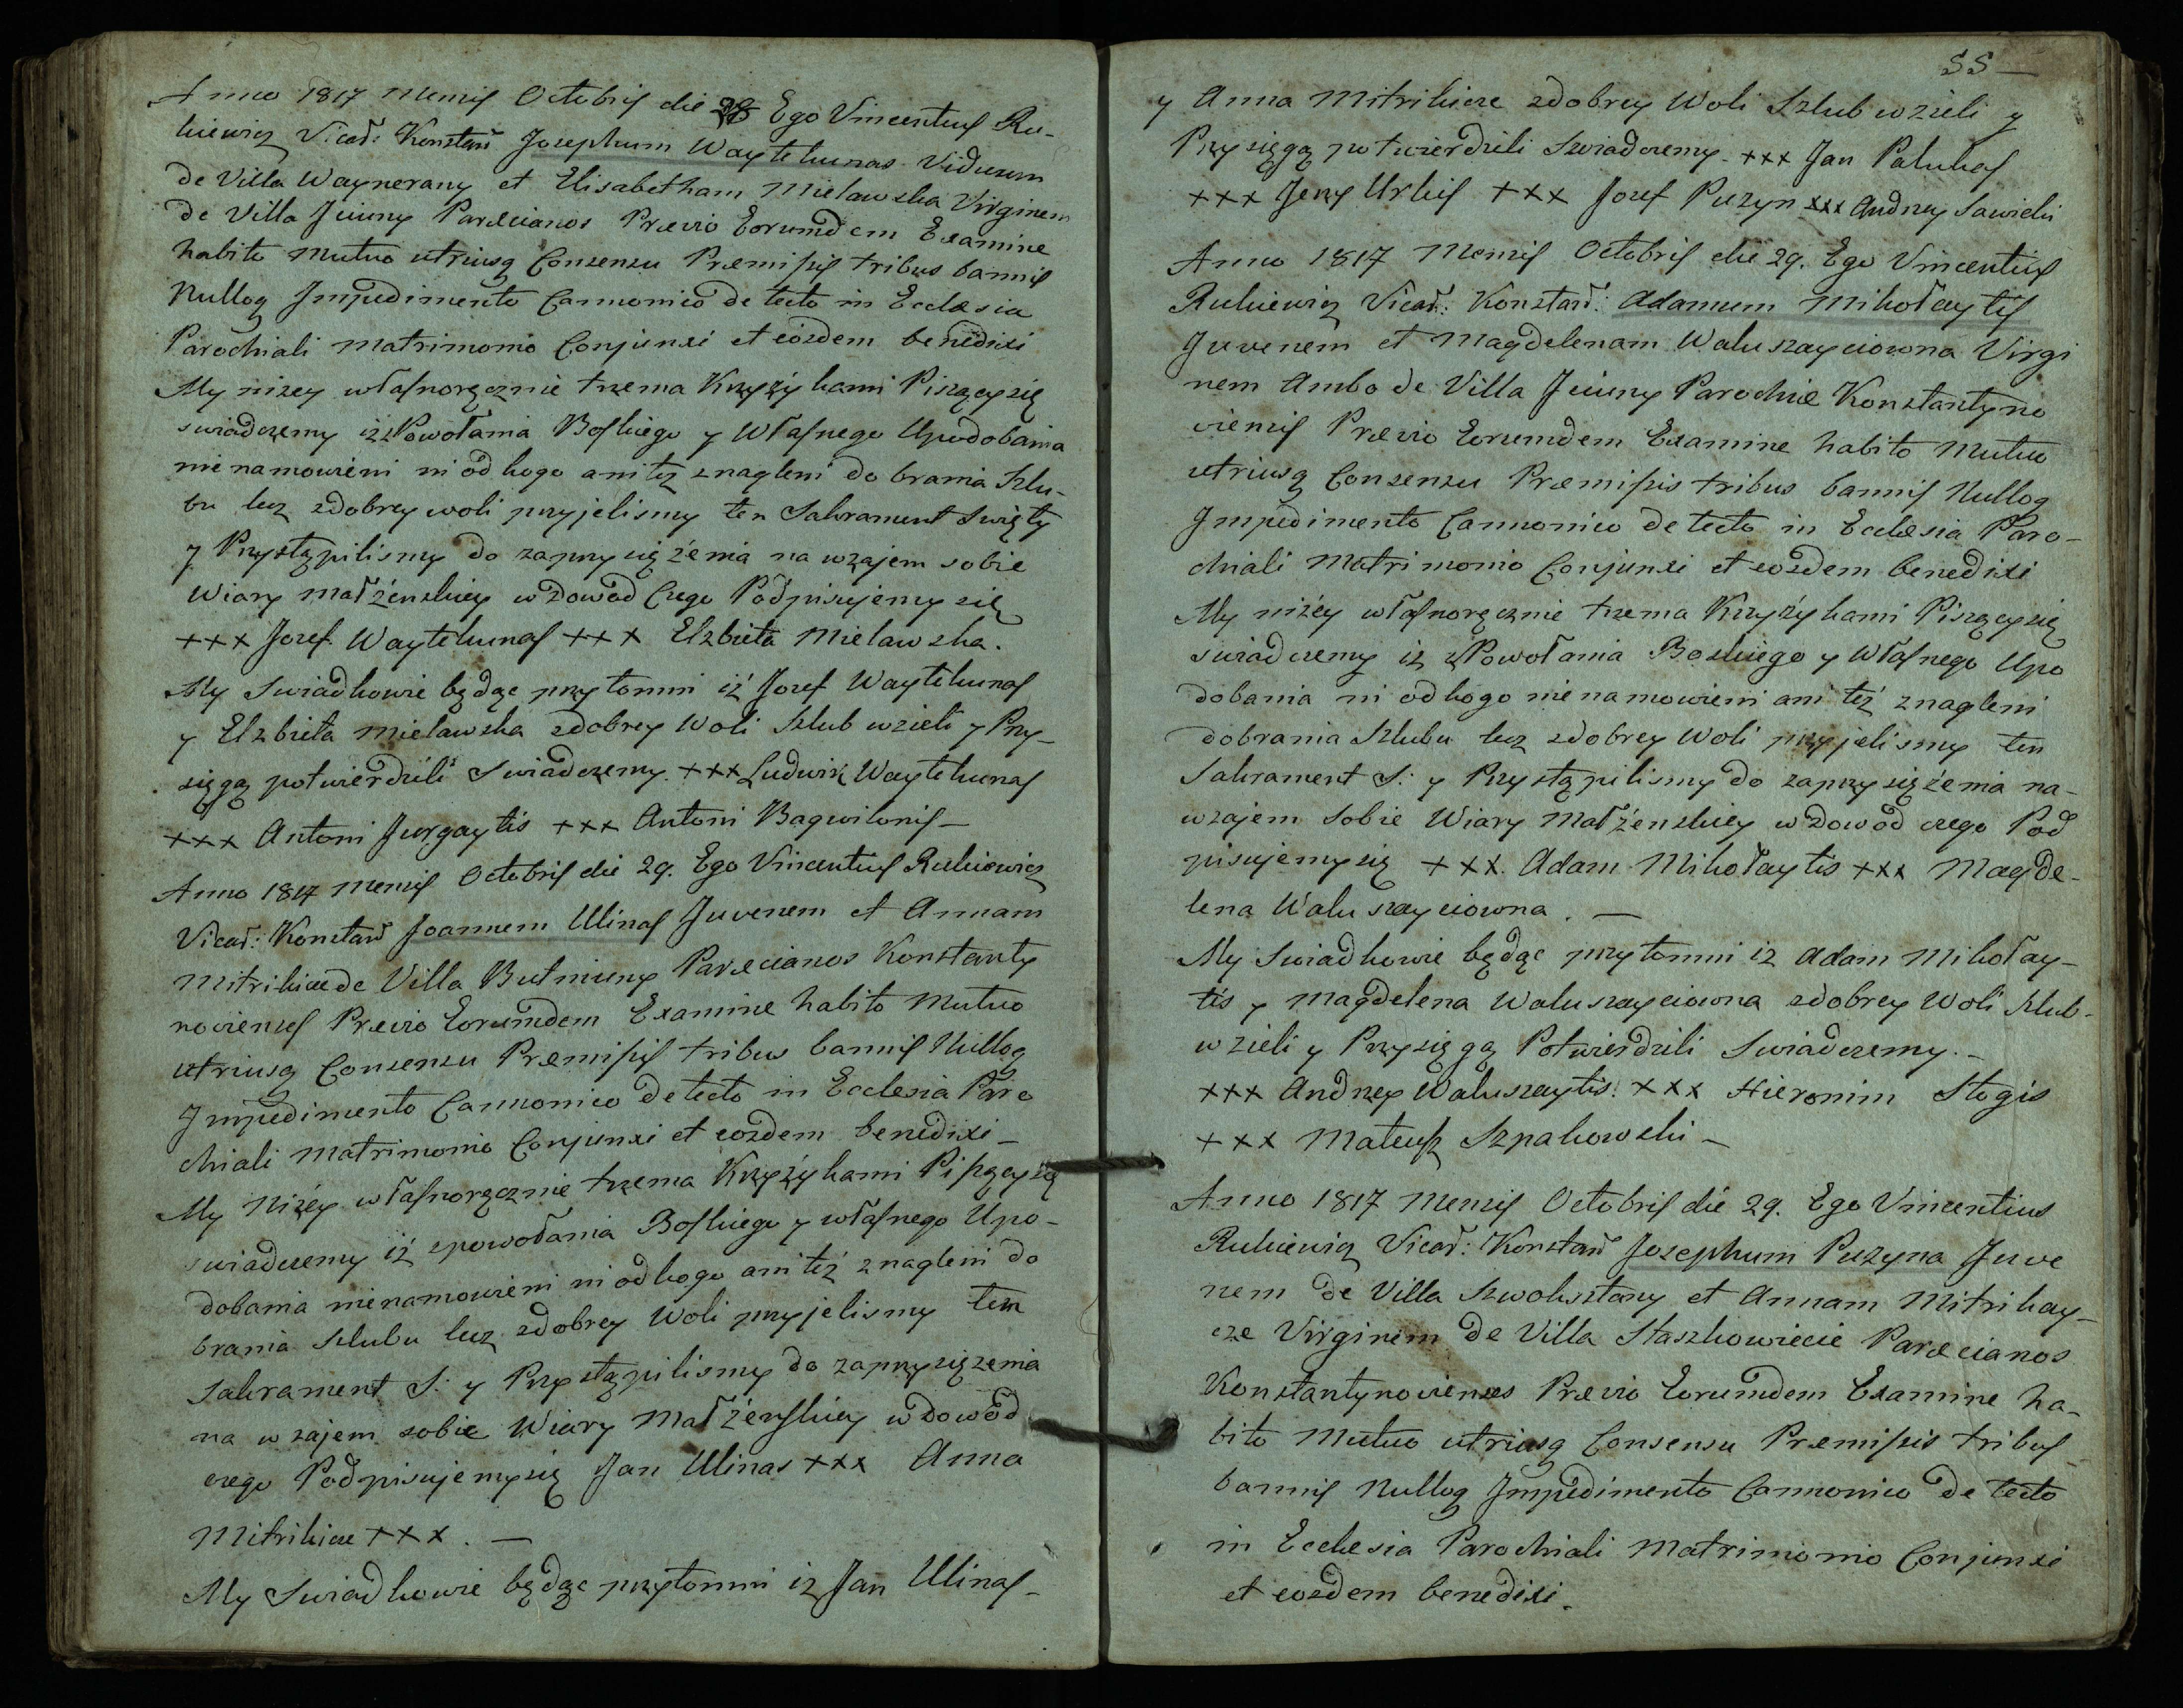 Anno 1817 Mensis Octobris die 28 Ego Vincentius Ru-
kiewicz Vicar: Konstan Josephum Waytekunas Viduum
de Villa Waynerany et Elisabetham Mielawska Virginem
de Villa Juciuny Paræcianos Prævio Eorumdem Examine
habito Mutuo utriusq Consensu Præmissis tribus bannis
Nulloq Impedimento Cannonico detecto in Ecclesia
Parochiali Matrimonio Conjunxi et eosdem benedixi
My nizey własnoręcznie trzema Krzyżykami Piszący się
swiadczemy iż z Powołania Boskiego y Własnego Upodobania
nie namowieni ni od kogo ani też znagleni do brania Szlu-
bu lecz zdobrey woli przyjelismy ten Sakrament Swięty
y Przystąpilismy do zaprzysiężenia na wzajem sobie
Wiary małżenskiey w dowod Czego Podpisujemy się
+++ Jozef Waytekunas +++ Elzbieta Mielawska.
My Swiadkowie będąc przytomni iż Jozef Waytekunas
y Elzbieta Mielawska zdobrey Woli Szlub wzieli y Przy-
sięgą potwierdzili Swiadczemy. +++ Ludwik Waytekunas
+++ Antoni Jurgaytis +++ Antoni Bagwilonis -
Anno 1817 Mensis Octobris die 29. Ego Vincentius Rukiewicz
Vicar: Konstan Joannem Ulinas Juvenem et Annam
Mitrikicze de Villa Butniuny Paræcianos Konstanty
novienses Prævio Eorumdem Examine habito Mutuo
utriusq Consensu Præmissis tribus bannis Nulloq
Impedimento Cannonico detecto in Ecclesia Paro
chiali Matrimonio Conjunxi et eosdem benedixi -
My Niżey własnoręcznie trzema Krzyżykami Piszący się
swiadczemy iż zpowołania Boskiego y własnego Upo-
dobania nienamowieni ni od kogo ani też znagleni do
brania Szlubu lecz zdobrey Woli przyjelismy ten
Sakrament S: y Przystąpilismy do zaprzysiężenia
na wzajem sobie Wiary Małżenskiey w dowod
czego Podpisujemy się Jan Ulinas +++ Anna
Mitrikicze +++ . —
My Swiadkowie będąc przytomni iż Jan Ulinas -
55 —
y Anna Mitrikicze zdobrey Woli Szlub wzieli y
Przysięgą potwierdzili Swiadczemy. +++ Jan Palukas
+++ Jerzy Urkis +++ Jozef Puzyn +++ Andrzey Sawicki
Anno 1817 Mensis Octobris die 29. Ego Vincentius
Rukiewicz Vicar: Konstan: Adamum Mikołaytis
Juvenem et Magdelenam Waluszayciowna Virgi
nem Ambo de Villa Juciuny Parochiæ Konstantyno
viensis Prævio Eorumdem Examine habito Mutuo
utriusq Consensu Præmissis tribus bannis Nulloq
Impedimento Cannonico detecto in Ecclesia Paro-
chiali Matrimonio Conjunxi et eosdem benedixi
My niżey własnoręcznie trzema Krzyżykami Piszący się
swiadczemy iż z Powołania Boskiego y Własnego Upo
dobania ni od kogo nie namowieni ani też znagleni
dobrania Szlubu lecz zdobrey Woli przyjelismy ten
Sakrament S: y Przystąpilismy do zaprzysiężenia na-
wzajem sobie Wiary Małżenskiey w dowod czego Pod
pisujemy się +++. Adam Mikołaytis +++ Magde-
lena Waluszayciowna . —
My Swiadkowie będąc przytomni iz Adam Mikołay-
tis y Magdelena Waluszayciowna zdobrey Woli Szlub-
wzieli y Przysięgą Potwierdzili Swiadczemy. -
+++ Andrzey Waluszaytis. +++ Hieronim Stogis
+++ Mateusz Szpakowski -
Anno 1817 Mensis Octobris die 29. Ego Vincentius
Rukiewicz Vicar: Konstan Josephum Puzyna Juve
nem de Villa Szwoksztany et Annam Mitrikay-
cze Virginem de Villa Staszkowiecie Paræcianos
Konstantynovienses Prævio Eorumdem Examine ha-
bito Mutuo utriusq Consensu Præmissis tribus
bannis Nulloq Impedimento Cannonico detecto
in Ecclesia Parochiali Matrimonio Conjunxi
et eosdem benedixi.